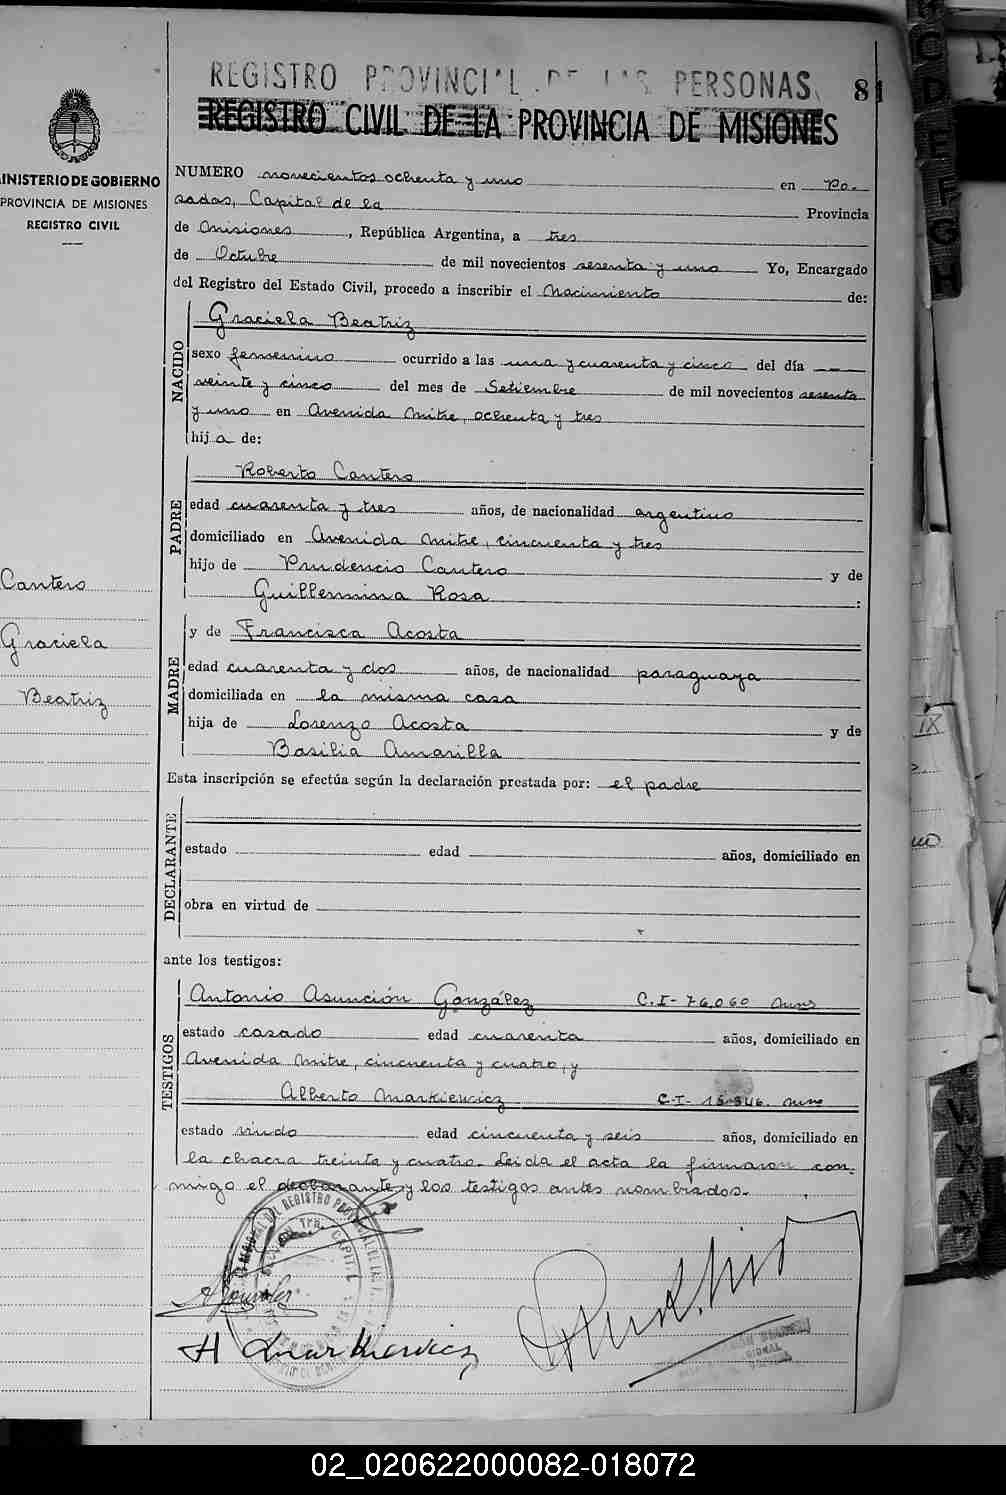 REGISTRO PROVINCIAL DE LAS PERSONAS
81
REGISTRO CIVIL DE LA PROVINCIA DE MISIONES
MINISTERIO DE GOBIERNO
PROVINCIA DE MISIONES
REGISTRO CIVIL
NUMERO novecientos ochenta y uno en Po-
sadas, Capital de la Provincia
de Misiones, República Argentina, a tres
de Octubre de mil novecientos sesenta y uno Yo, Encargado
del Registro del Estado Civil, procedo a inscribir el Nacimiento de:
NACIDO
Graciela Beatriz
sexo femenino ocurrido a las una y cuarenta y cinco del día
veinte y cinco del mes de Setiembre de mil novecientos sesenta
y uno en Avenida Mitre, ochenta y tres
hija de:
PADRE
Roberto Cantero
edad cuarenta y tres años, de nacionalidad argentino
domiciliado en Avenida Mitre, cincuenta y tres
hijo de Prudencio Cantero y de
Guillermina Rosa :
Cantero
Graciela
Beatriz
MADRE
y de Francisca Acosta
edad cuarenta y dos años, de nacionalidad paraguaya
domiciliada en la misma casa
hija de Lorenzo Acosta y de
Basilia Amarilla
Esta inscripción se efectúa según la declaración prestada por: el padre
DECLARANTE
estado edad años, domiciliado en
obra en virtud de
ante los testigos:
TESTIGOS
Antonio Asunción González C.I- 76.060 Mnes
estado casado edad cuarenta años, domiciliado en
Avenida Mitre, cincuenta y cuatro, y
Alberto Markiewicz C.I- Mnes
estado viudo edad cincuenta y seis años, domiciliado en
la chacra treinta y cuatro. Leida el acta la firmaron con-
migo el declarante y los testigos antes nombrados.
A González
A Markiewicz
02_020622000082-018072